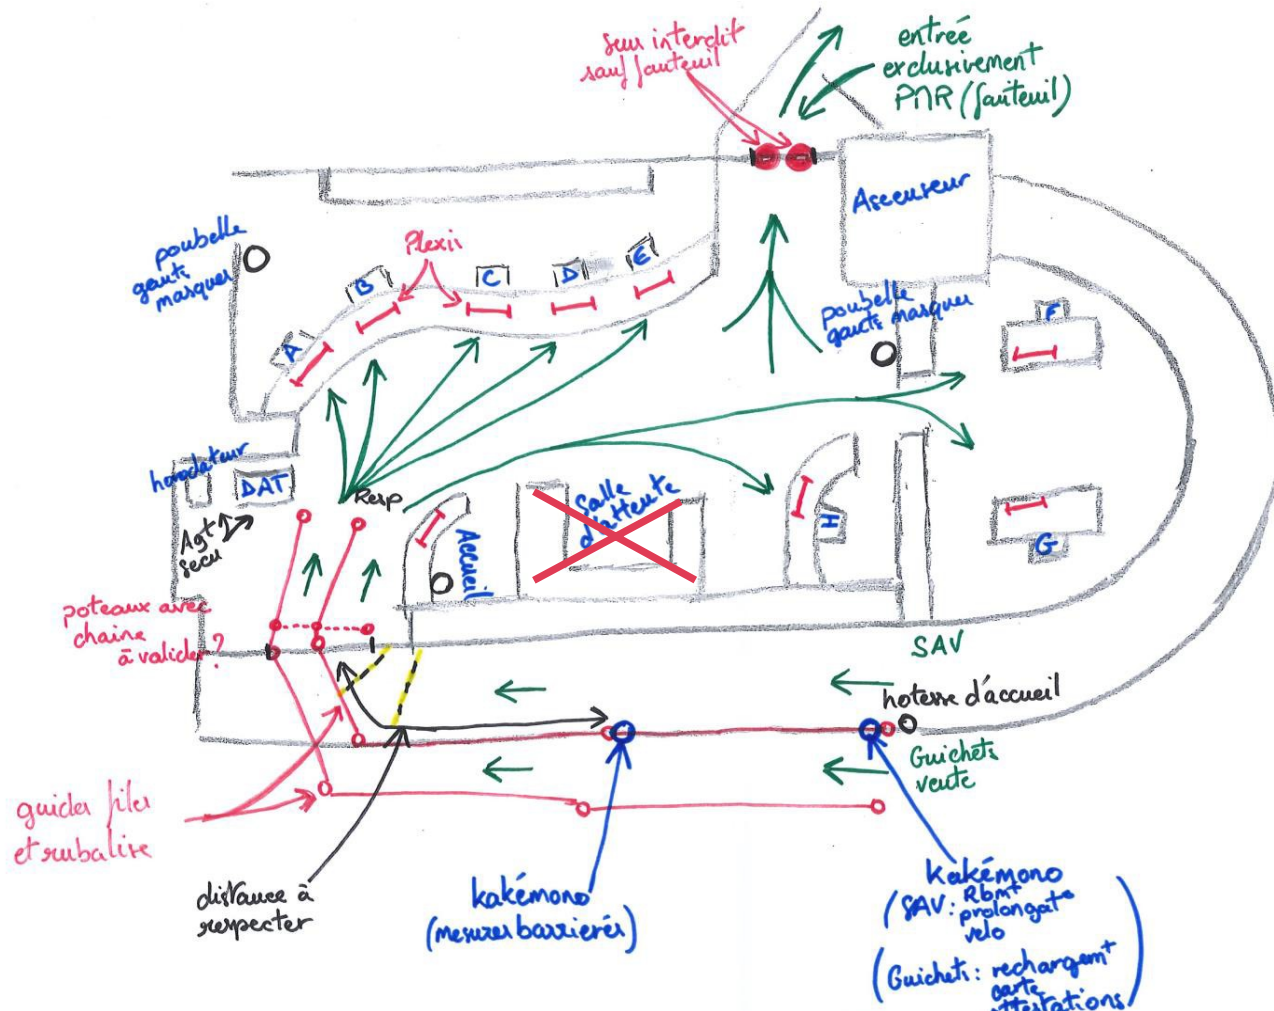 sens interdit
sauf fauteuil
entrée
exclusivement
PMR (fauteuil)
Ascenseur
poubelle
gants
masques
Plexii
A
B
C
D
E
poubelle
gants masques
F
horodateur
DAT
Resp
Agt
secu
Accueil
Salle
d'attente
H
G
poteaux avec
chaine
à valider?
SAV
hotesse d'accueil
Guichets
vente
guider files
et rubalise
distance à
respecter
kakémono
(mesures barrières)
Kakémono
(SAV: Rbmt
prolongat°
velo
(Guichets: rechargemt
carte
attestations)